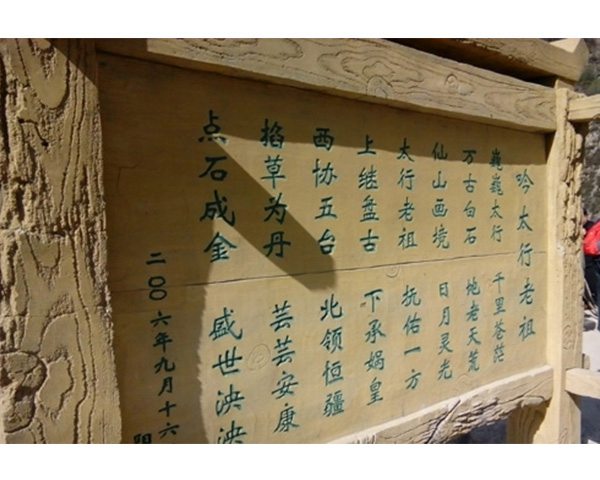 吟太行老祖
巍巍太行 千里苍茫
万古白石 地老天荒
仙山画境 日月灵光
太行老祖 抚佑一方
上继盘古 下承娲皇
西协五台 北领恒疆
掐草为丹 芸芸安康
点石成金 盛世泱泱
二〇〇六年九月十六
阳